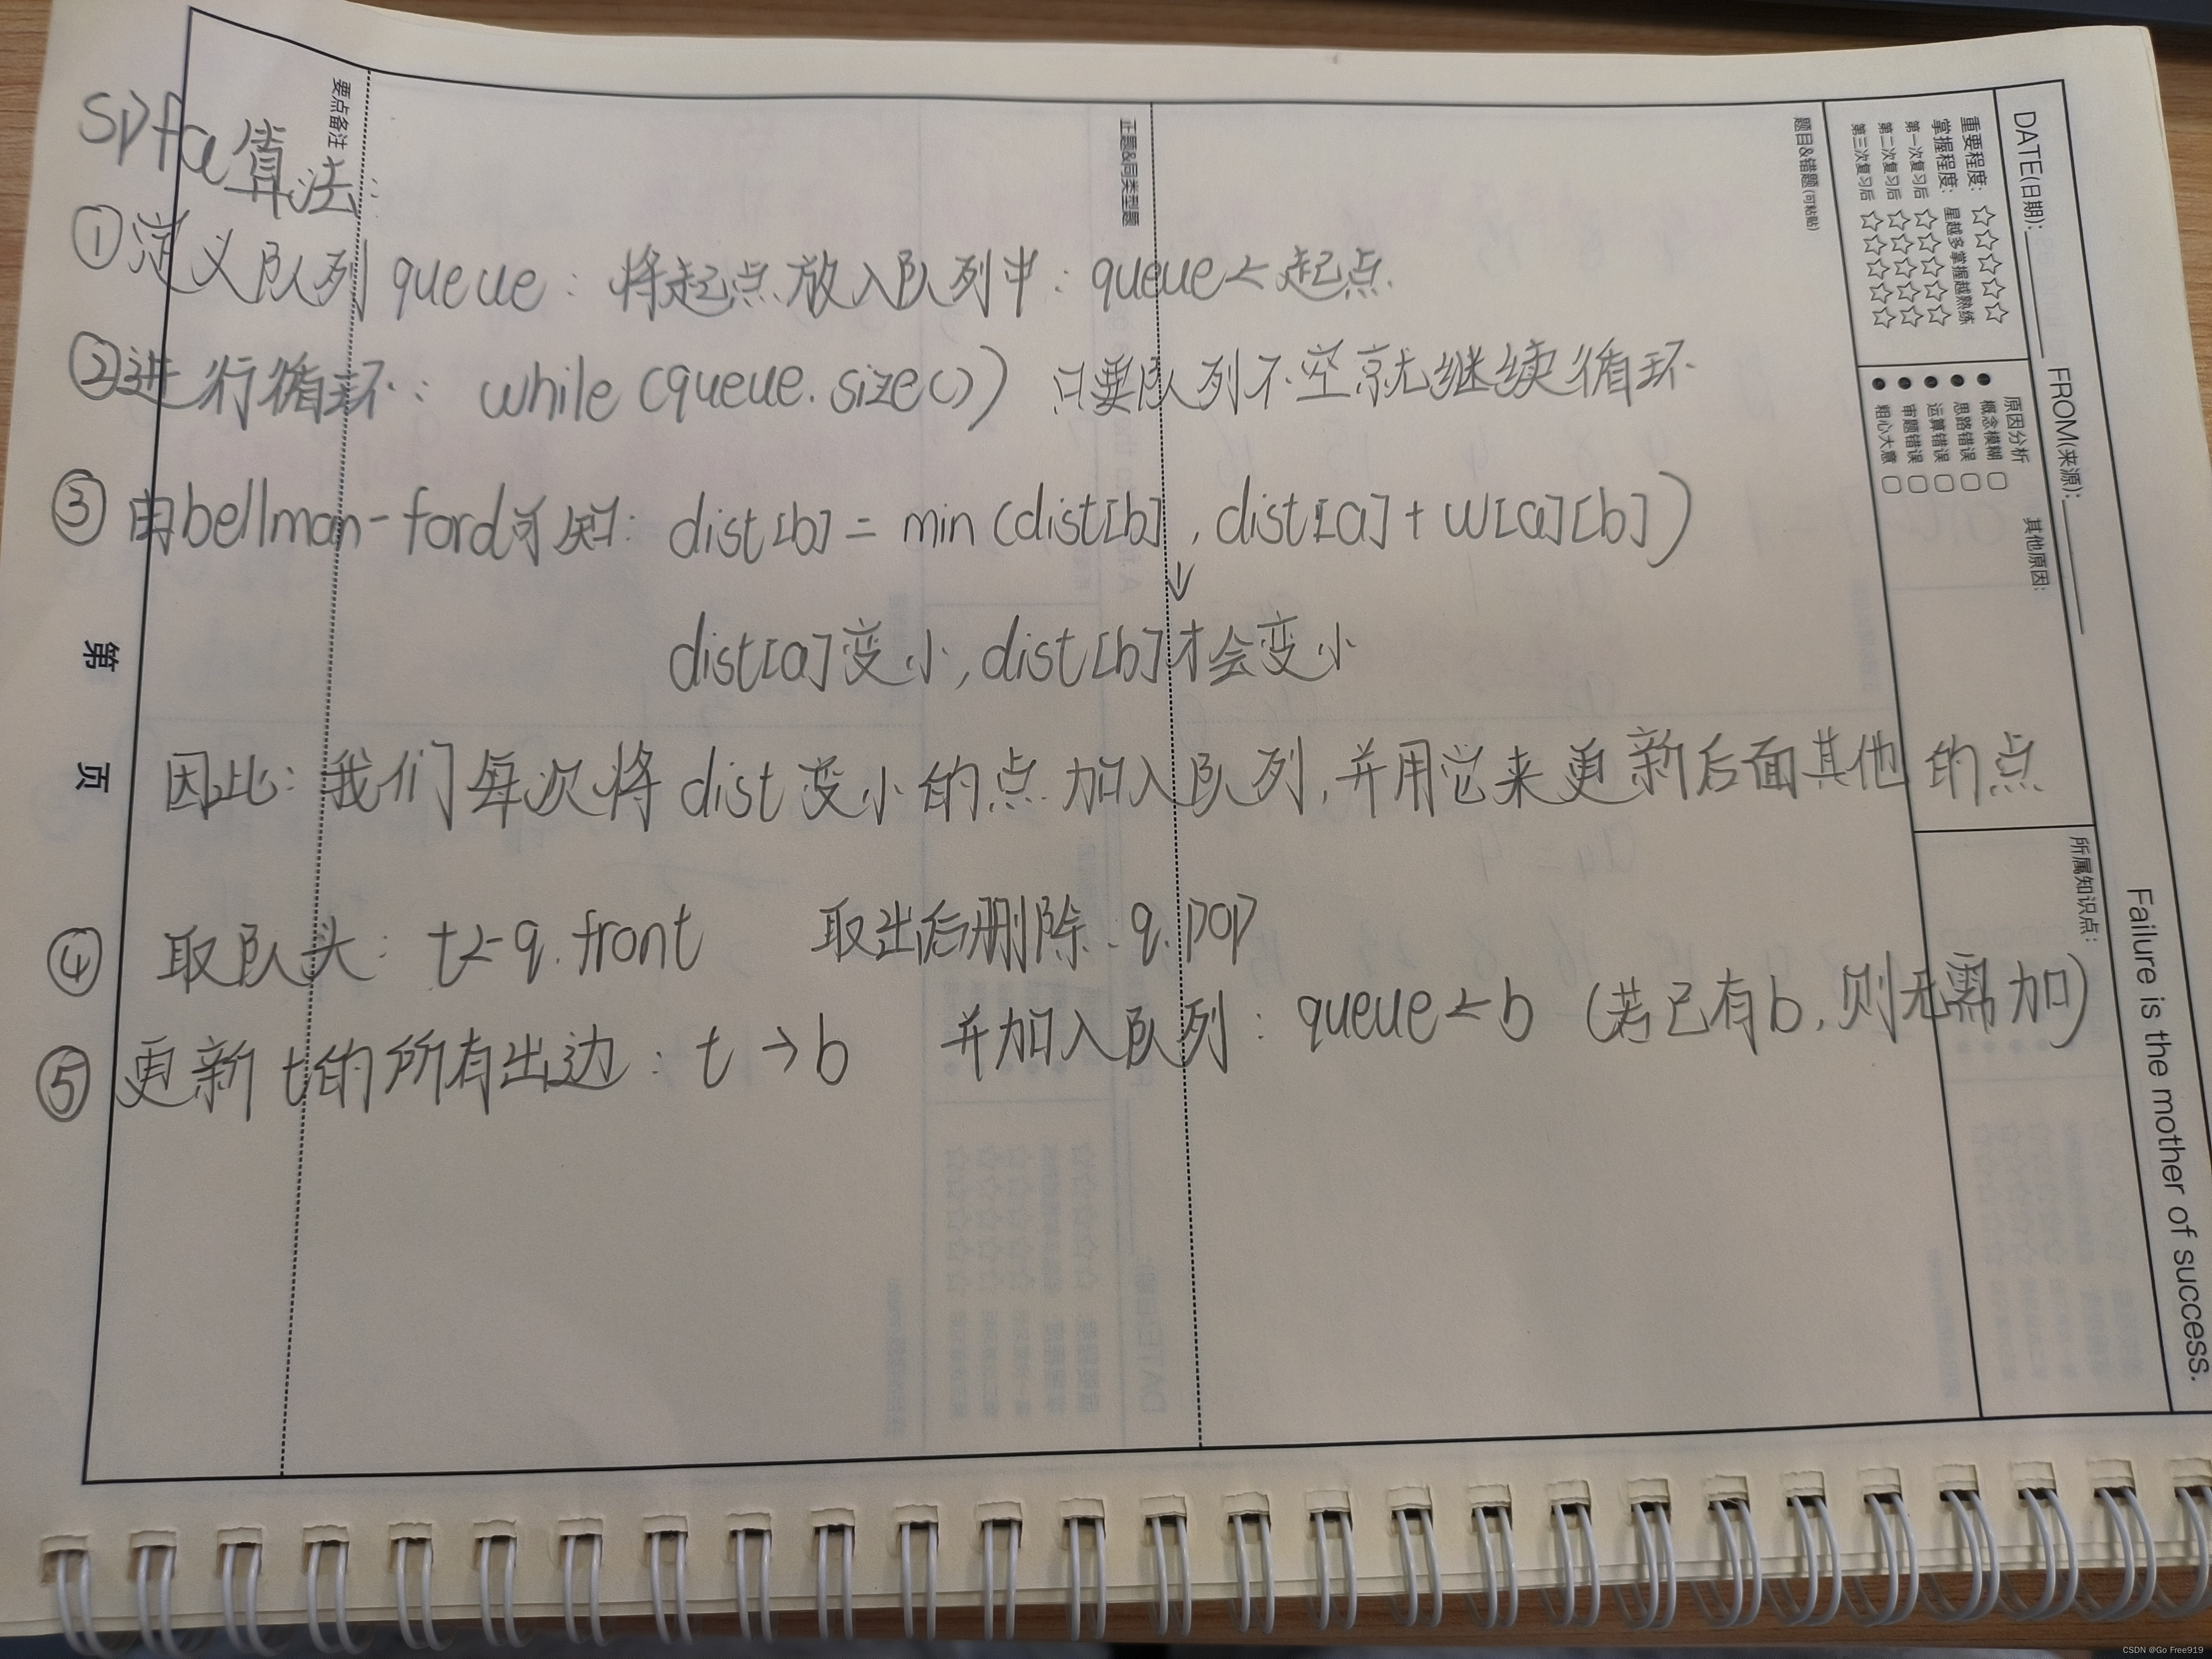 spfa算法:
①定义队列queue: 将起点放入队列中: queue←起点.
②进行循环: while (queue.size()) 只要队列不空就继续循环
③ 由bellman-ford可知: dist[b] = min (dist[b], dist[a] + w[a][b])
↓
dist[a]变小, dist[b]才会变小
因此: 我们每次将dist变小的点加入队列, 并用它来更新后面其他的点
④ 取队头: t←q.front 取出后删除 q.pop
⑤ 更新t的所有出边: t→b 并加入队列: queue←b (若已有b, 则无需加)
要点备注
正题&同类型题
题目&错题(可粘贴)
DATE(日期): FROM(来源):
重要程度: ☆☆☆☆☆
掌握程度: 星越多掌握越熟练
第一次复习后 ☆☆☆☆☆
第二次复习后 ☆☆☆☆☆
第三次复习后 ☆☆☆☆☆
原因分析
● 概念模糊
● 思路错误
● 运算错误
● 审题错误
● 粗心大意
其他原因:
所属知识点:
Failure is the mother of success.
第 页
CSDN @Go Free919